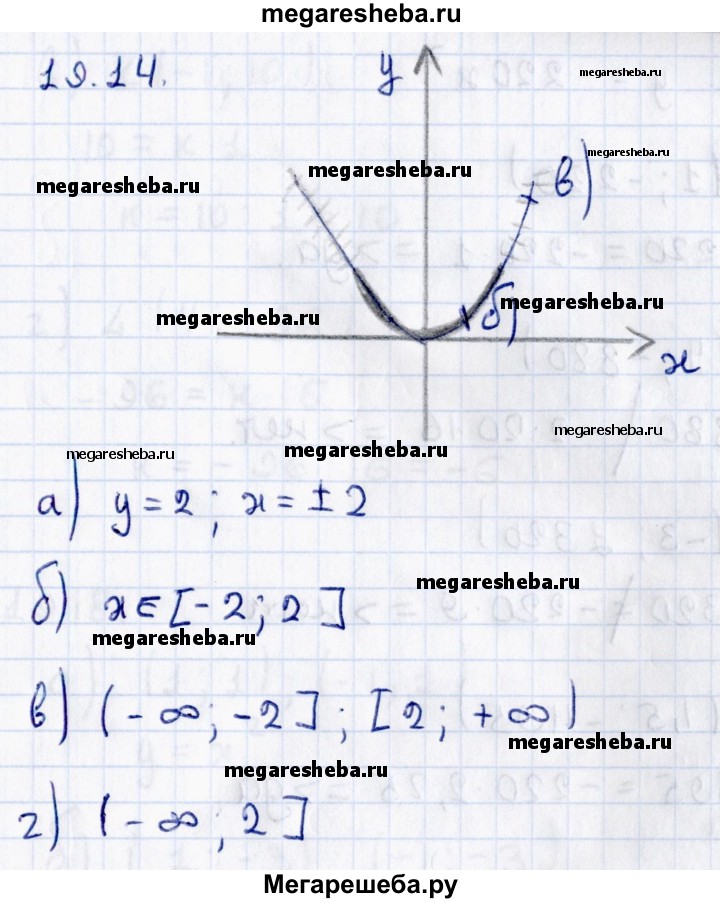 megaresheba.ru
19.14.
y
megaresheba.ru
megaresheba.ru
megaresheba.ru
megaresheba.ru
в)
megaresheba.ru
б)
megaresheba.ru
x
megaresheba.ru
megaresheba.ru
megaresheba.ru
а) y = 2; x = ± 2
megaresheba.ru
б) x ∈ [-2; 2]
megaresheba.ru
в) (-∞; -2]; [2; +∞)
megaresheba.ru
megaresheba.ru
г) (-∞; 2]
Мегарешеба.ру